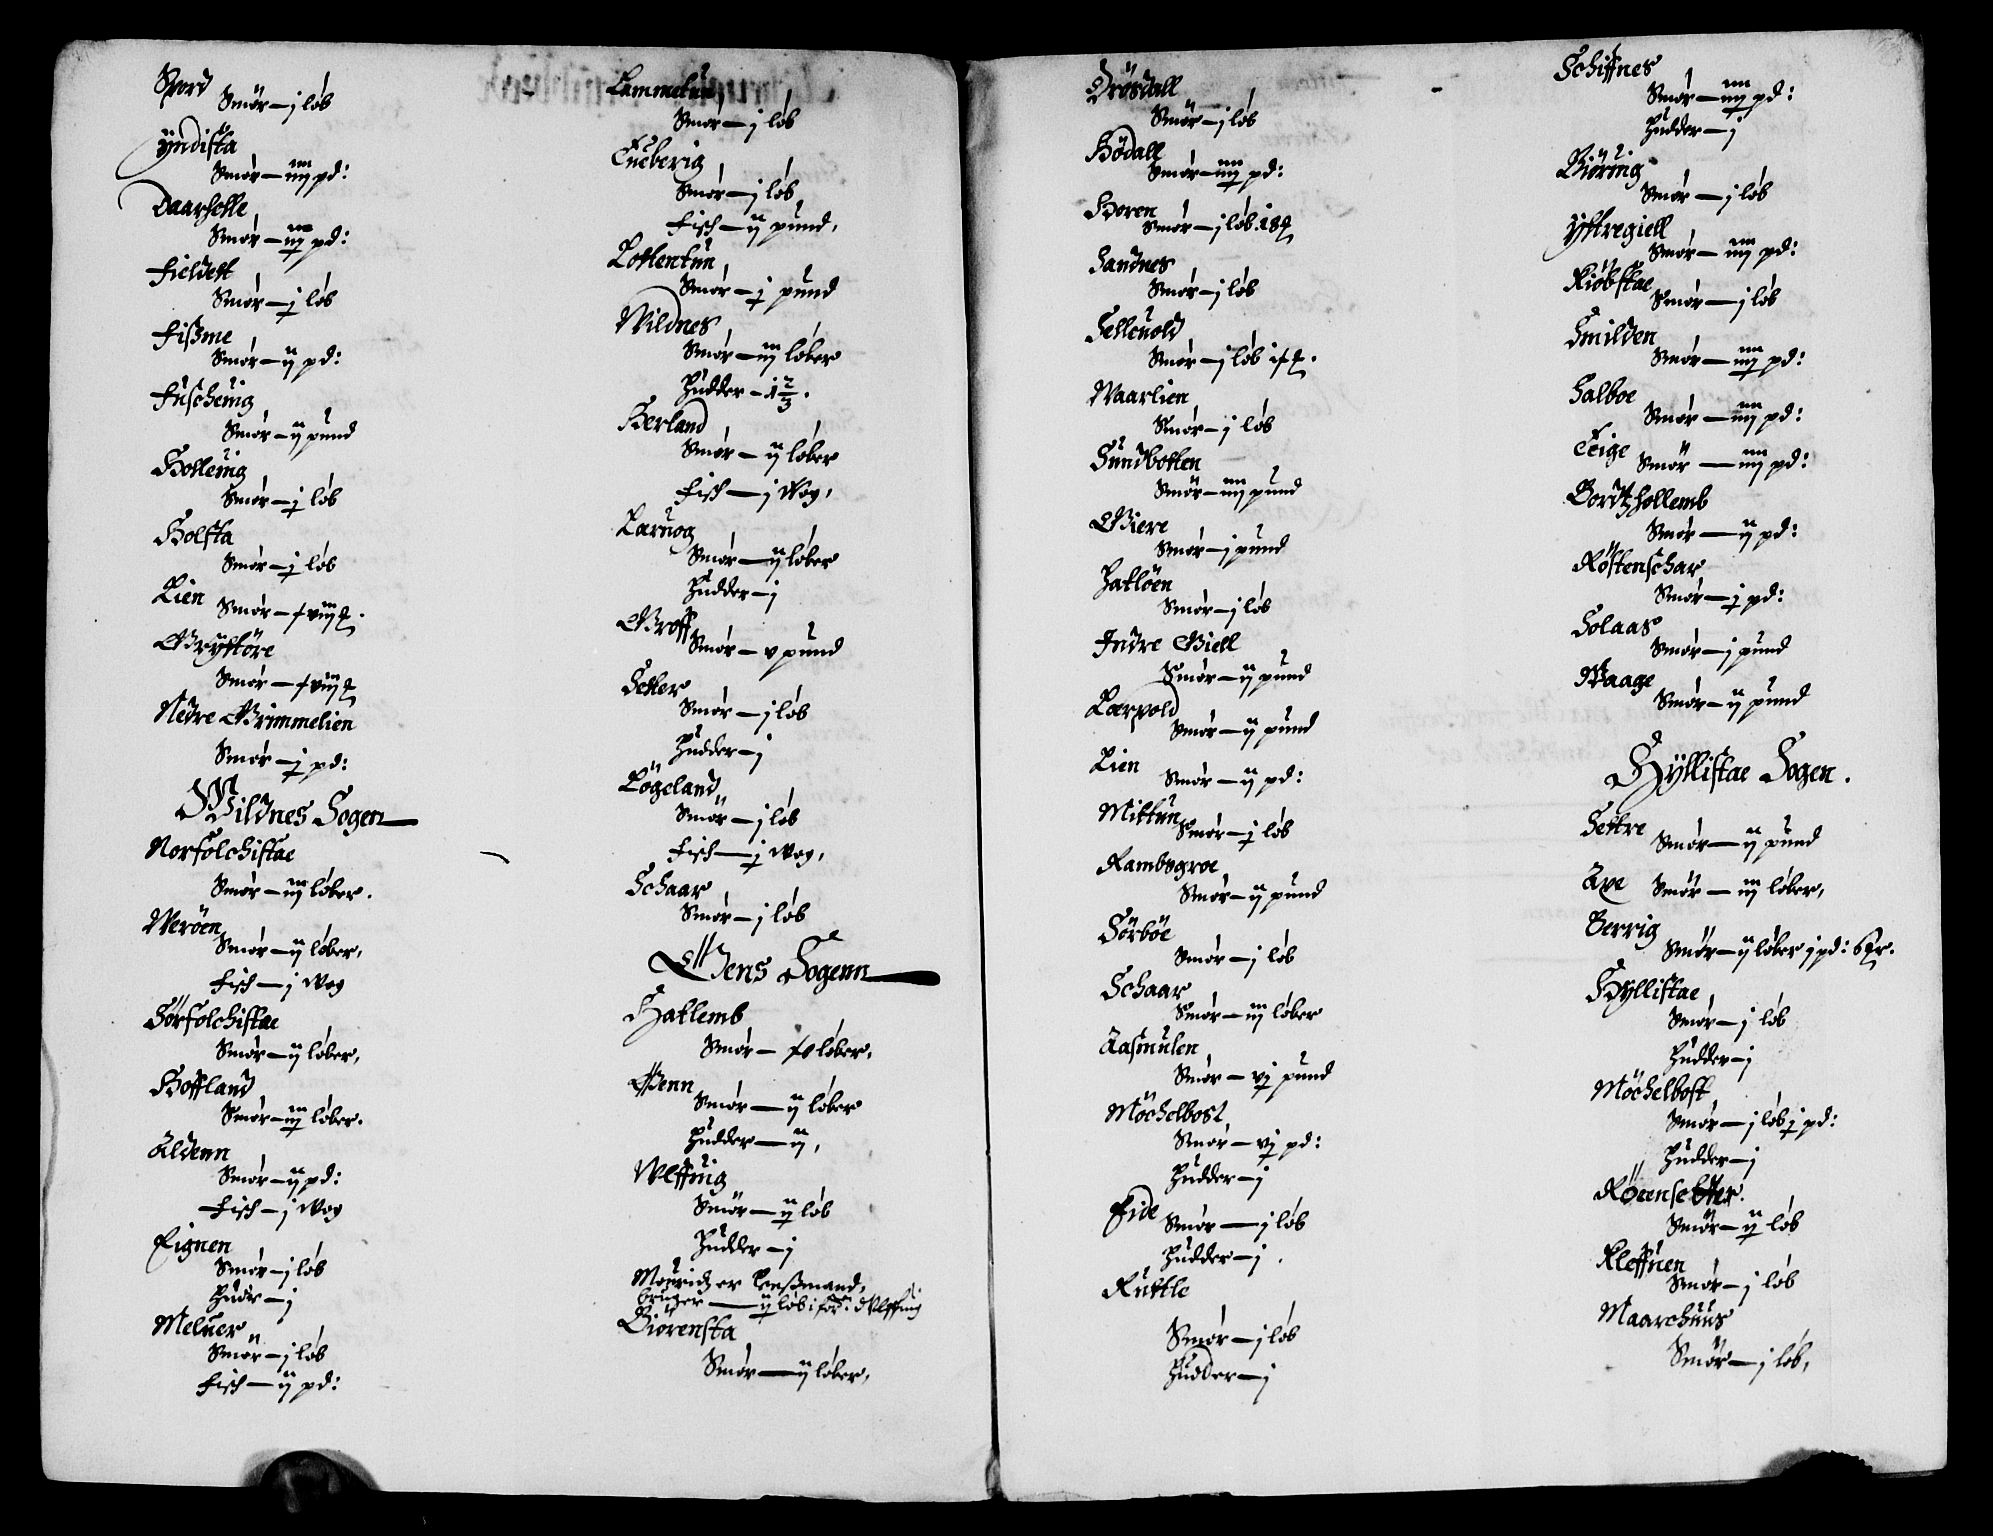 Svord
Smör — j löb
Yndista
Smör — iiij pd:
Daarhelle
Smör — iij pd:
Fieldett
Smör — j löb
Fißme
Smör — ij pd:
Fuscheuig
Smör — ij pund
Holleuig
Smör — j löb
Holsta
Smör — j löb
Lien
Smör —
Gryttöre
Smör —
Nedre Grimmelien
Smör — j pd:
Wildnes Sogen
Norfolchistae
Smör — iij löber.
Weröen
Smör — ij löber,
Fisch — j Wog
Sörfolchistae
Smör — ij löber,
Hoffland
Smör — iij löber.
Aldenn
Smör — ij pd:
Fisch — j Wog
Eignen
Smör — j löb
Huder — j
Meluer
Smör — j löb
Fisch — ij pd:
Lammetun
Smör — j löb
Tueberig
Smör — j löb
Fisch — ij pund,
Lottentun
Smör — j pund
Wildnes
Smör — iij löber
Hudder — 1 2/3.
Herland
Smör — ij löber
Fisch — j Wog,
Laruog
Smör — ij löber
Hudder — j
Groff
Smör — v pund
Setter
Smör — j löb
Hudder — j
Lögeland
Smör — j löb
Fisch — j Wog,
Schaar
Smör — j löb
Gens Sogenn
Hatlemb
Smör — löber,
Genn
Smör — ij löber
Hudder — ij,
Welffuig
Smör — ij löb
Hudder — j
Mouridz er Lensmand,
bruger — ij löb i for: Welffuig
Biörensta
Smör — ij löber,
Drösdall
Smör — j löb
Hödall
Smör — iiij pd:
Horen
Smör — j löb 18
Sandnes
Smör — j löb
Selleuold
Smör — j löb
Waarlien
Smör — j löb
Sundbotten
Smör — iiij pund
Giere
Smör — j pund
Hatlöen
Smör — j löb
Indre Giell
Smör — ij pund
Laruold
Smör — ij pund
Lien
Smör — ij pd:
Mittun
Smör — j löb
Rambsgroe
Smör — ij pund
Sörböe
Smör — j löb
Schaar
Smör — iij löber
Aasmulen
Smör — vj pund
Möchelbost
Smör — vj pd:
Hudder — j
Eide
Smör — j löb
Hudder — j.
Ruttle
Smör — j löb
Hudder — j
Schiffnes
Smör — iiij pd:
Hudder — j
Biöring
Smör — j löb
Yttregiell
Smör — iiij pd:
Riöbstae
Smör — j löb
Smilden
Smör — iiij pd:
Salboe
Smör — iiij pd:
Teige
Smör — iiij pd:
Bordtzhollemb
Smör — ij pd:
Röstenschar
Smör — j pd:
Solaas
Smör — j pund
Waage
Smör — ij pund
Hyllistae Sogen.
Settre
Smör — ij pund
Axe
Smör — iij löber,
Berrig
Smör — ij löber j pd: 6
Hyllistae
Smör — j löb
Hudder — j
Möchelbost
Smör — j löb j pd:
Hudder — j
Röeensetter.
Smör — ij löb
Kleffuen
Smör — j löb
Maarchuus
Smör — j löb,